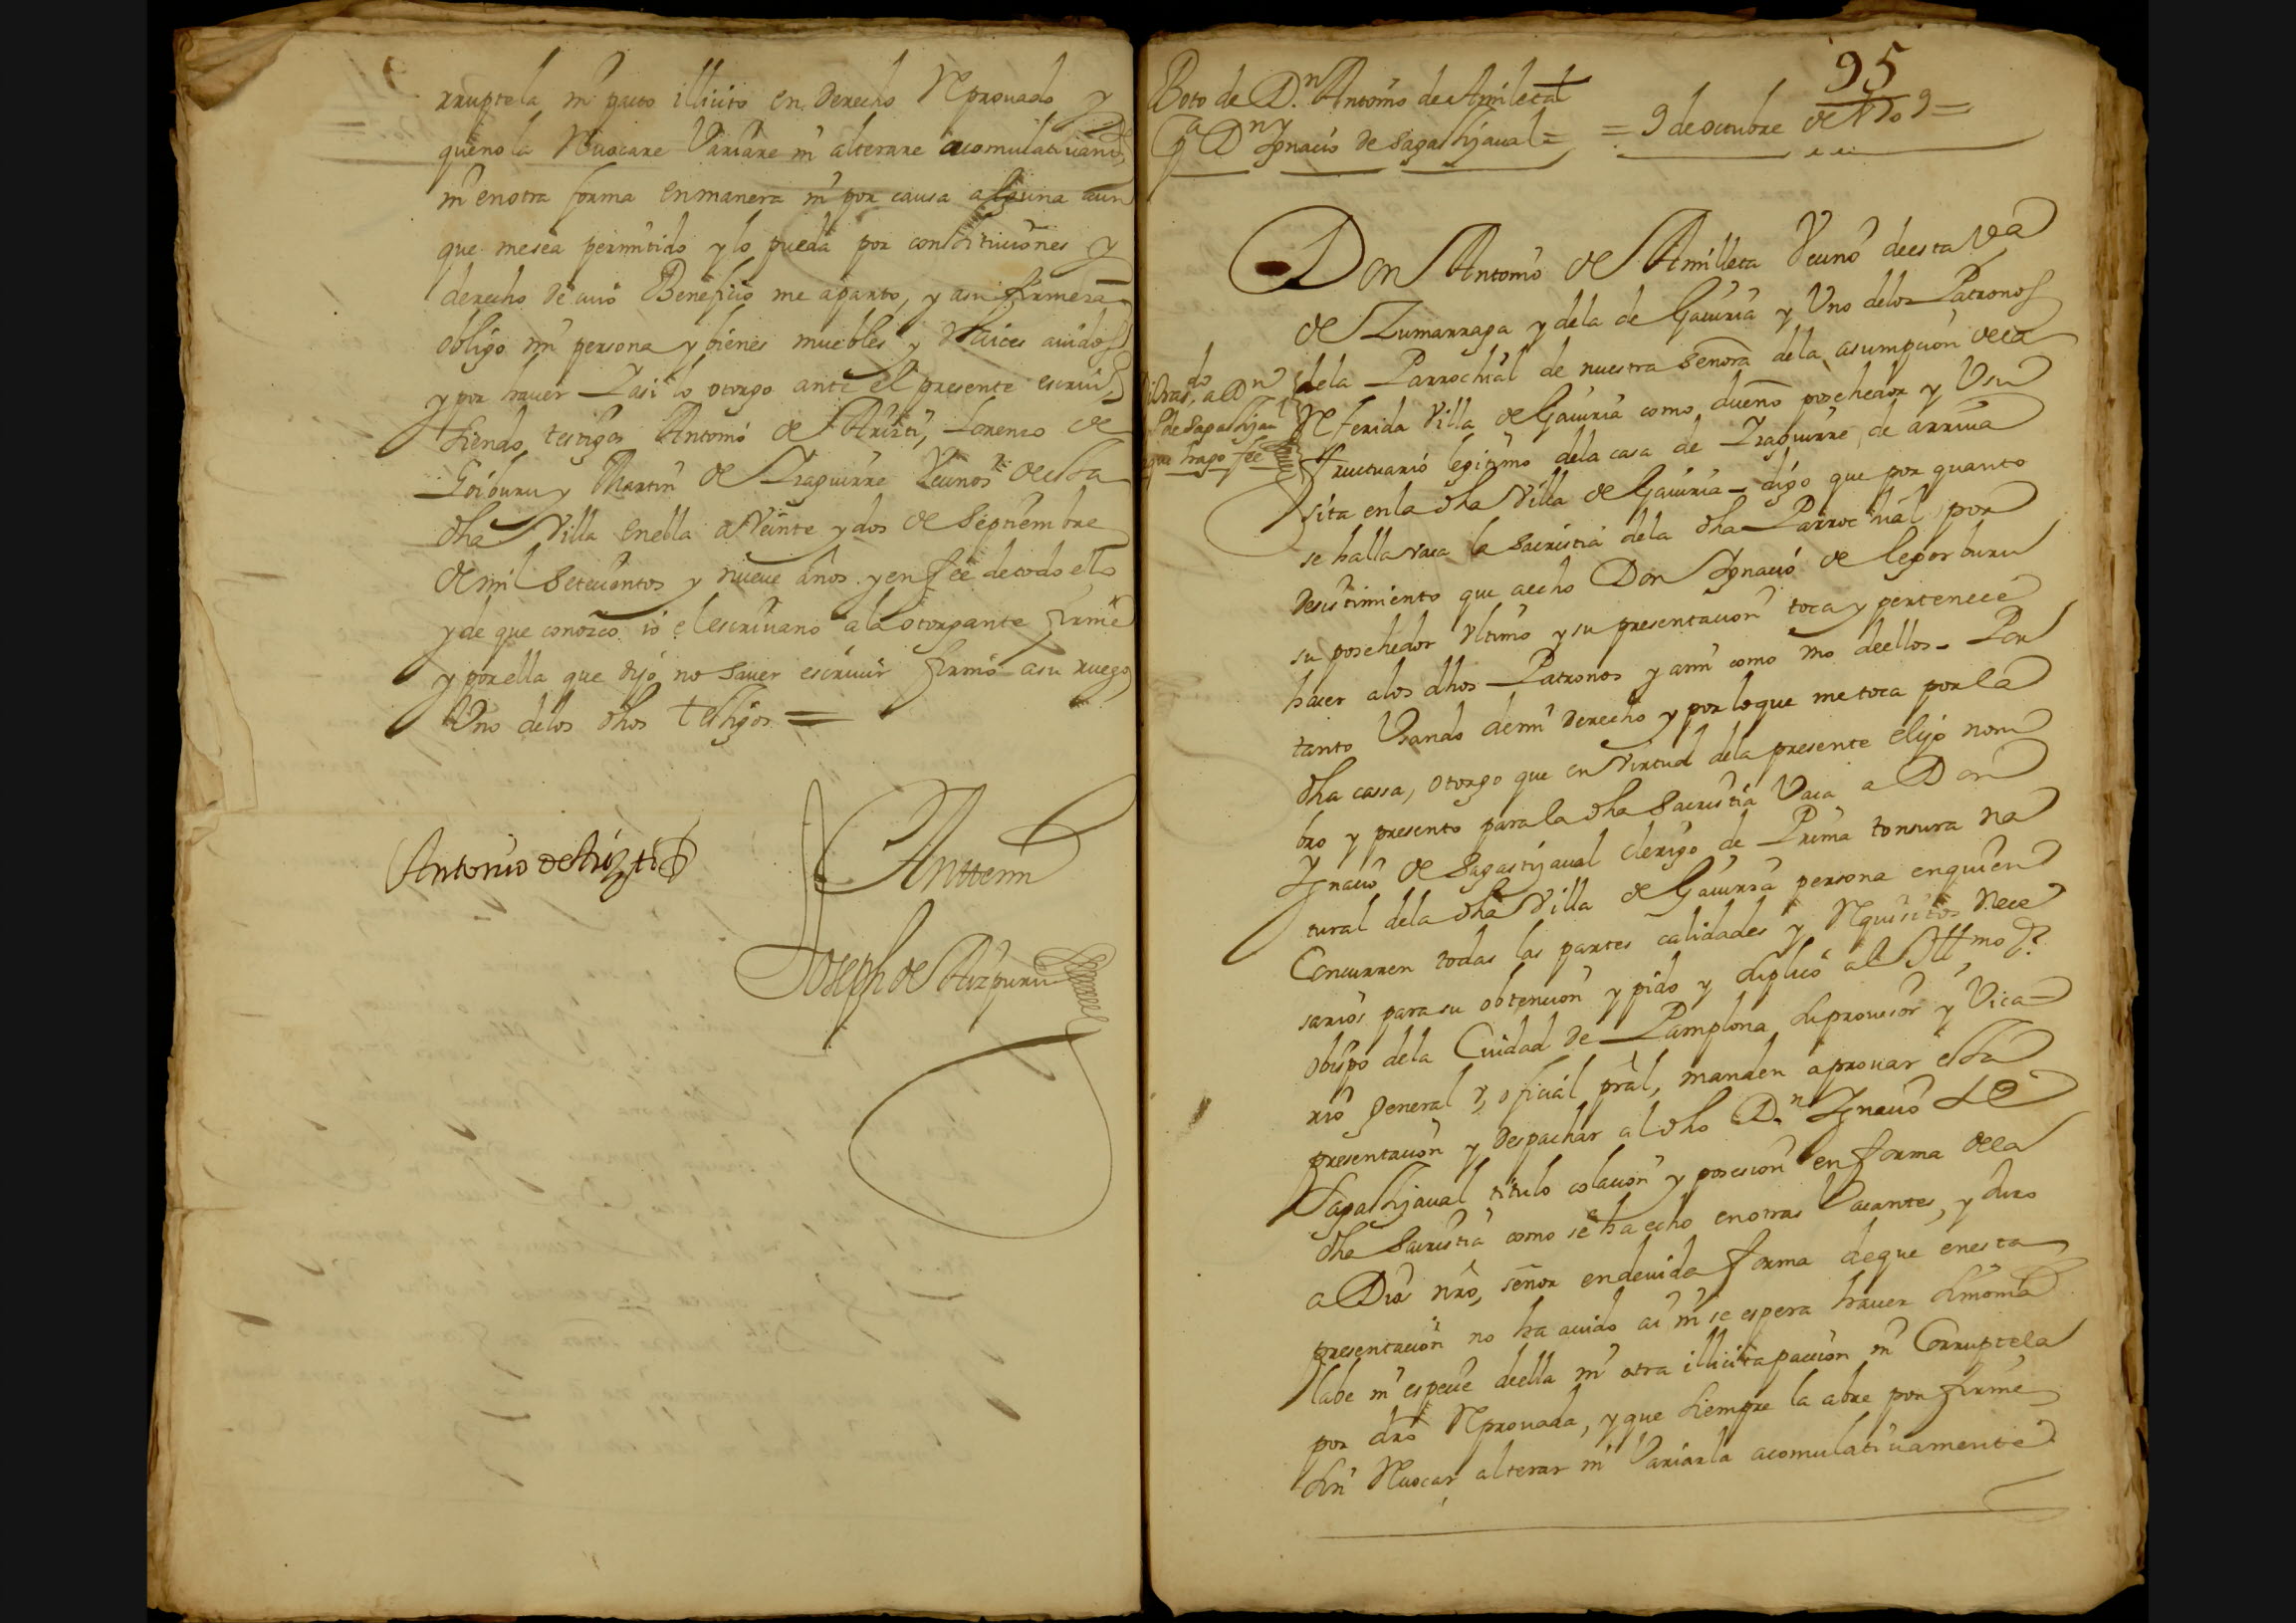 rruptela ni pacto illicito en derecho Reprouado y
queno la Reuocare Variare ni alterare acomulatiuamte
ni enotra forma enmanera ni por causa alguna aun
que mesea permitido ylo pueda por constituciones y
derecho de cuio Beneficio me aparto, y asu firmeza
obligo mi persona y bienes muebles y Raices auidos
y por hauer Iasi lo otorgo ante el presente escriuo
siendo testigos Antonio de Arizti, Lorenzo de
Goiburu y Martin de Izaguirre Vecinos de esta
dha Villa enella a Veinte y dos de Septiembre
de mil Setecientos y nueue años y enfee detodo ello
y de que conozco io el escriuano ala otorgante firme
y porella que dijo no sauer escriuir firmo asu ruego
Uno delos dhos testigos =
Antonio de Arizti
Antemi
Joseph de Aizpuru
95
Boto de D.n Antonio de Amileta
Pa Dn Ignacio de Sagastijaual =
= 9 de octubre de 1709 =
Don Antonio de Amilleta Vecino deesta Va
de Zumarraga y dela de Gauiria y Uno delos Patronos
dela Parrochial de nuestra señora dela asumpcion dela
Referida Villa de Gauiria como dueño poschedor y Usu
fructuario legitimo dela casa de Izaguirre de arriua
sita enla dha Villa de Gauiria - digo que por quanto
se halla vaca la sacristia dela dha Parrochial por
desistimiento que aecho Don Ignacio de Legorburu
su poschedor Vltimo y su presentacion toca y pertenece
hacer alos dhos Patronos y ami como vno deellos - Por
tanto Usando demi derecho y por loque me toca porla
dha cassa, otorgo que en Virtud dela presente elijo nom
bro y presento parala dha Sacristia Vaca a Don
Ygnacio de Sagastijaual clerigo de Prima tonsura na
tural dela dha Villa de Gauiria persona enquien
Concurren todas las partes calidades y Requisitos nece
sarios parasu obtencion y pido y suplico al Illmo Sr
obispo dela Ciudad de Pamplona suprouisor y Vica
rio general y oficial pral, manden aprouar esta
presentacion y despachar al dho D.n Ignacio de
Sagastijaual titulo colacion y posesion enforma dela
dha Sacristia como se ha echo enotras Vacantes, y Juro
a Dios nro, señor endeuida forma deque enesta
presentacion no ha auido ai ni se espera hauer simonia
labe ni especie deella ni otra illicita paccion ni Corruptela
por dro Reprouada, y que siempre la abre por firme
sin Reuocar alterar ni Variarla acomulatiuamente
de Sagastijaual
que hago fee